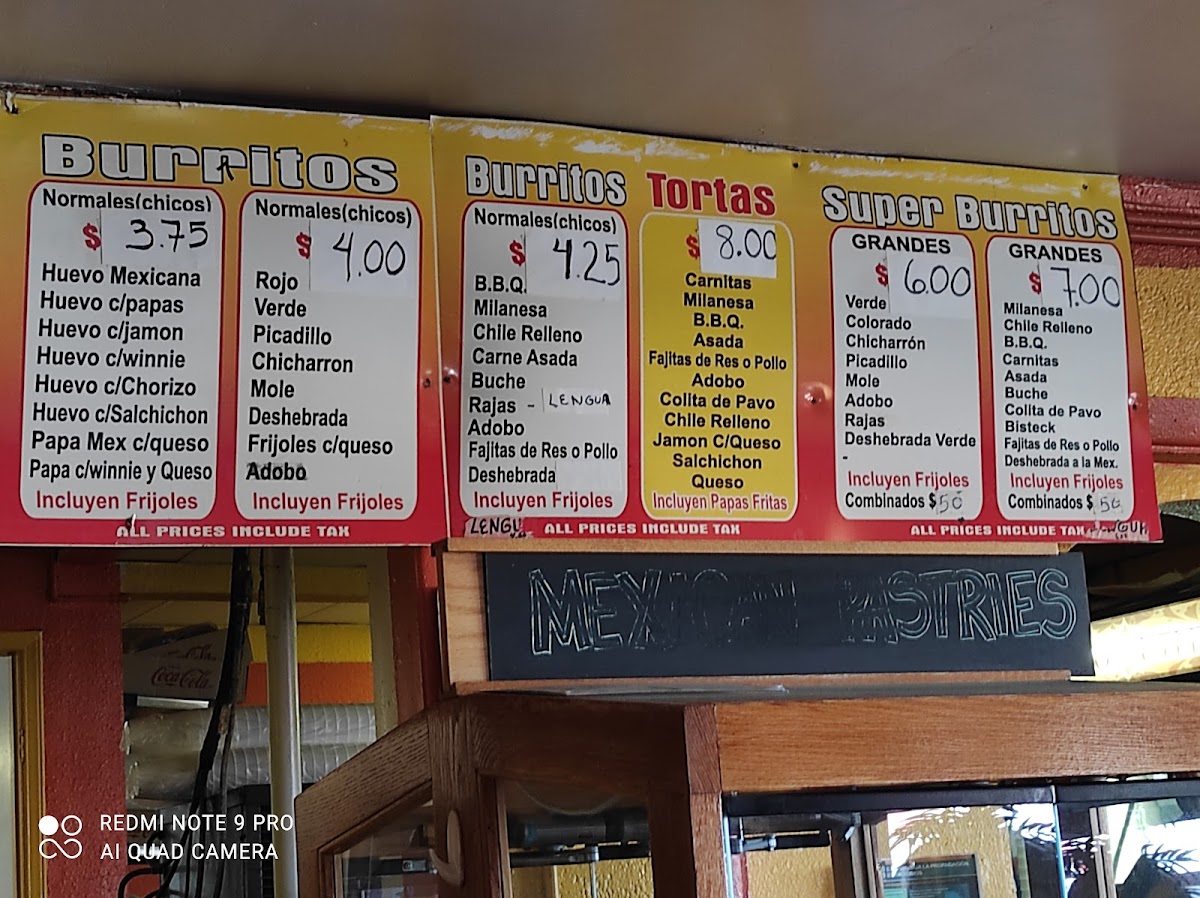 Burritos
Normales(chicos)
$ 3.75
Huevo Mexicana
Huevo c/papas
Huevo c/jamon
Huevo c/winnie
Huevo c/Chorizo
Huevo c/Salchichon
Papa Mex c/queso
Papa c/winnie y Queso
Incluyen Frijoles
Normales(chicos)
$ 4.00
Rojo
Verde
Picadillo
Chicharron
Mole
Deshebrada
Frijoles c/queso
Adobo
Incluyen Frijoles
ALL PRICES INCLUDE TAX
Burritos
Normales(chicos)
$ 4.25
B.B.Q.
Milanesa
Chile Relleno
Carne Asada
Buche
Rajas - LENGUA
Adobo
Fajitas de Res o Pollo
Deshebrada
Incluyen Frijoles
Tortas
$ 8.00
Carnitas
Milanesa
B.B.Q.
Asada
Fajitas de Res o Pollo
Adobo
Colita de Pavo
Chile Relleno
Jamon C/Queso
Salchichon
Queso
Incluyen Papas Fritas
ALL PRICES INCLUDE TAX
Super Burritos
GRANDES
$ 6.00
Verde
Colorado
Chicharrón
Picadillo
Mole
Adobo
Rajas
Deshebrada Verde
-
Incluyen Frijoles
Combinados $ 50
GRANDES
$ 7.00
Milanesa
Chile Relleno
B.B.Q.
Carnitas
Asada
Buche
Colita de Pavo
Bisteck
Fajitas de Res o Pollo
Deshebrada a la Mex.
Incluyen Frijoles
Combinados $ 50
ALL PRICES INCLUDE TAX
MEXICAN PASTRIES
Coca-Cola
REDMI NOTE 9 PRO
AI QUAD CAMERA